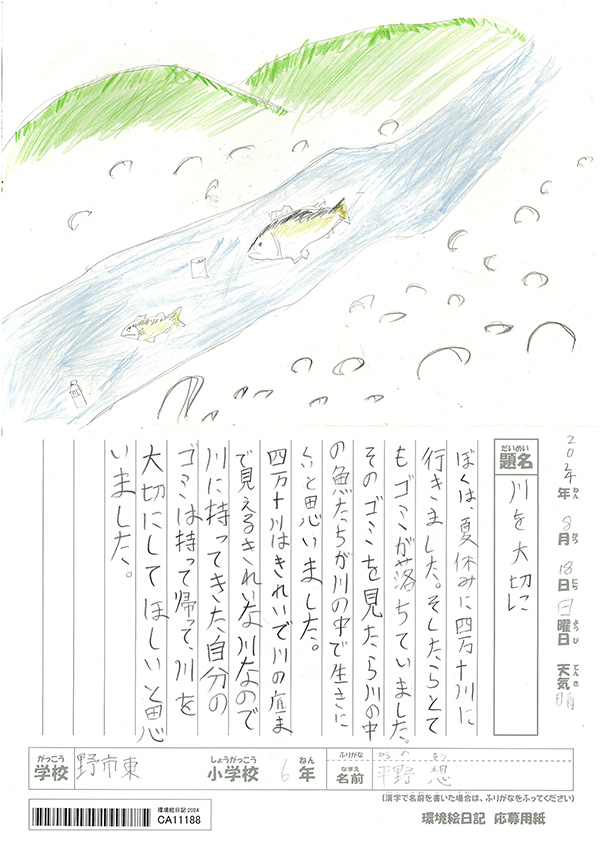 2024年8月18日日曜日 天気晴
ねん がつ にち ようび てんき
だいめい
題名
川を大切に
ぼくは、夏休みに四万十川に
行きました。そしたらとて
もゴミが落ちていました。
そのゴミを見たら川の中
の魚たちが川の中で生きに
くいと思いました。
四万十川はきれいで川の底ま
で見えるきれいな川なので
川に持ってきた自分の
ゴミは持って帰って、川を
大切にしてほしいと思
いました。
がっこう しょうがっこう ねん ふりがな ひらの そう
学校 野市東 小学校 6年 なまえ 名前 平野 想
(漢字で名前を書いた場合は、ふりがなをふってください)
環境絵日記2024
CA11188
環境絵日記 応募用紙